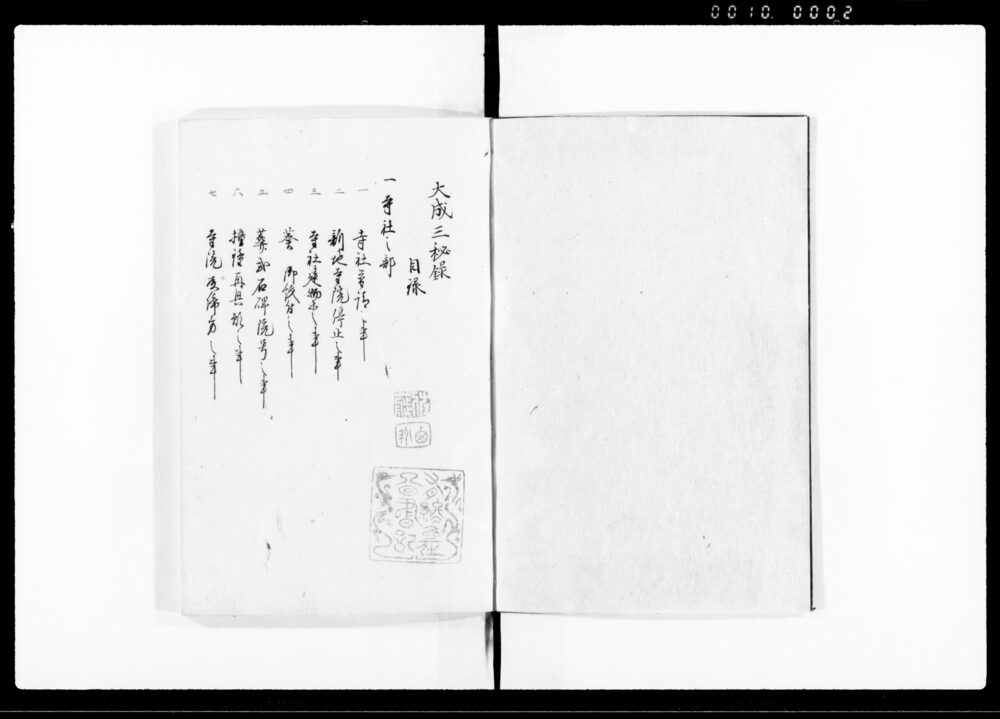 0010.0002
大成三秘録
目録
一 寺社之部
一 寺社普請之事
二 新地寺院停止之事
三 寺社建物等之事
四 葵 御紋付之事
五 葬式石碑院号之事
六 撞鐘再興願之事
七 寺院取締方之事